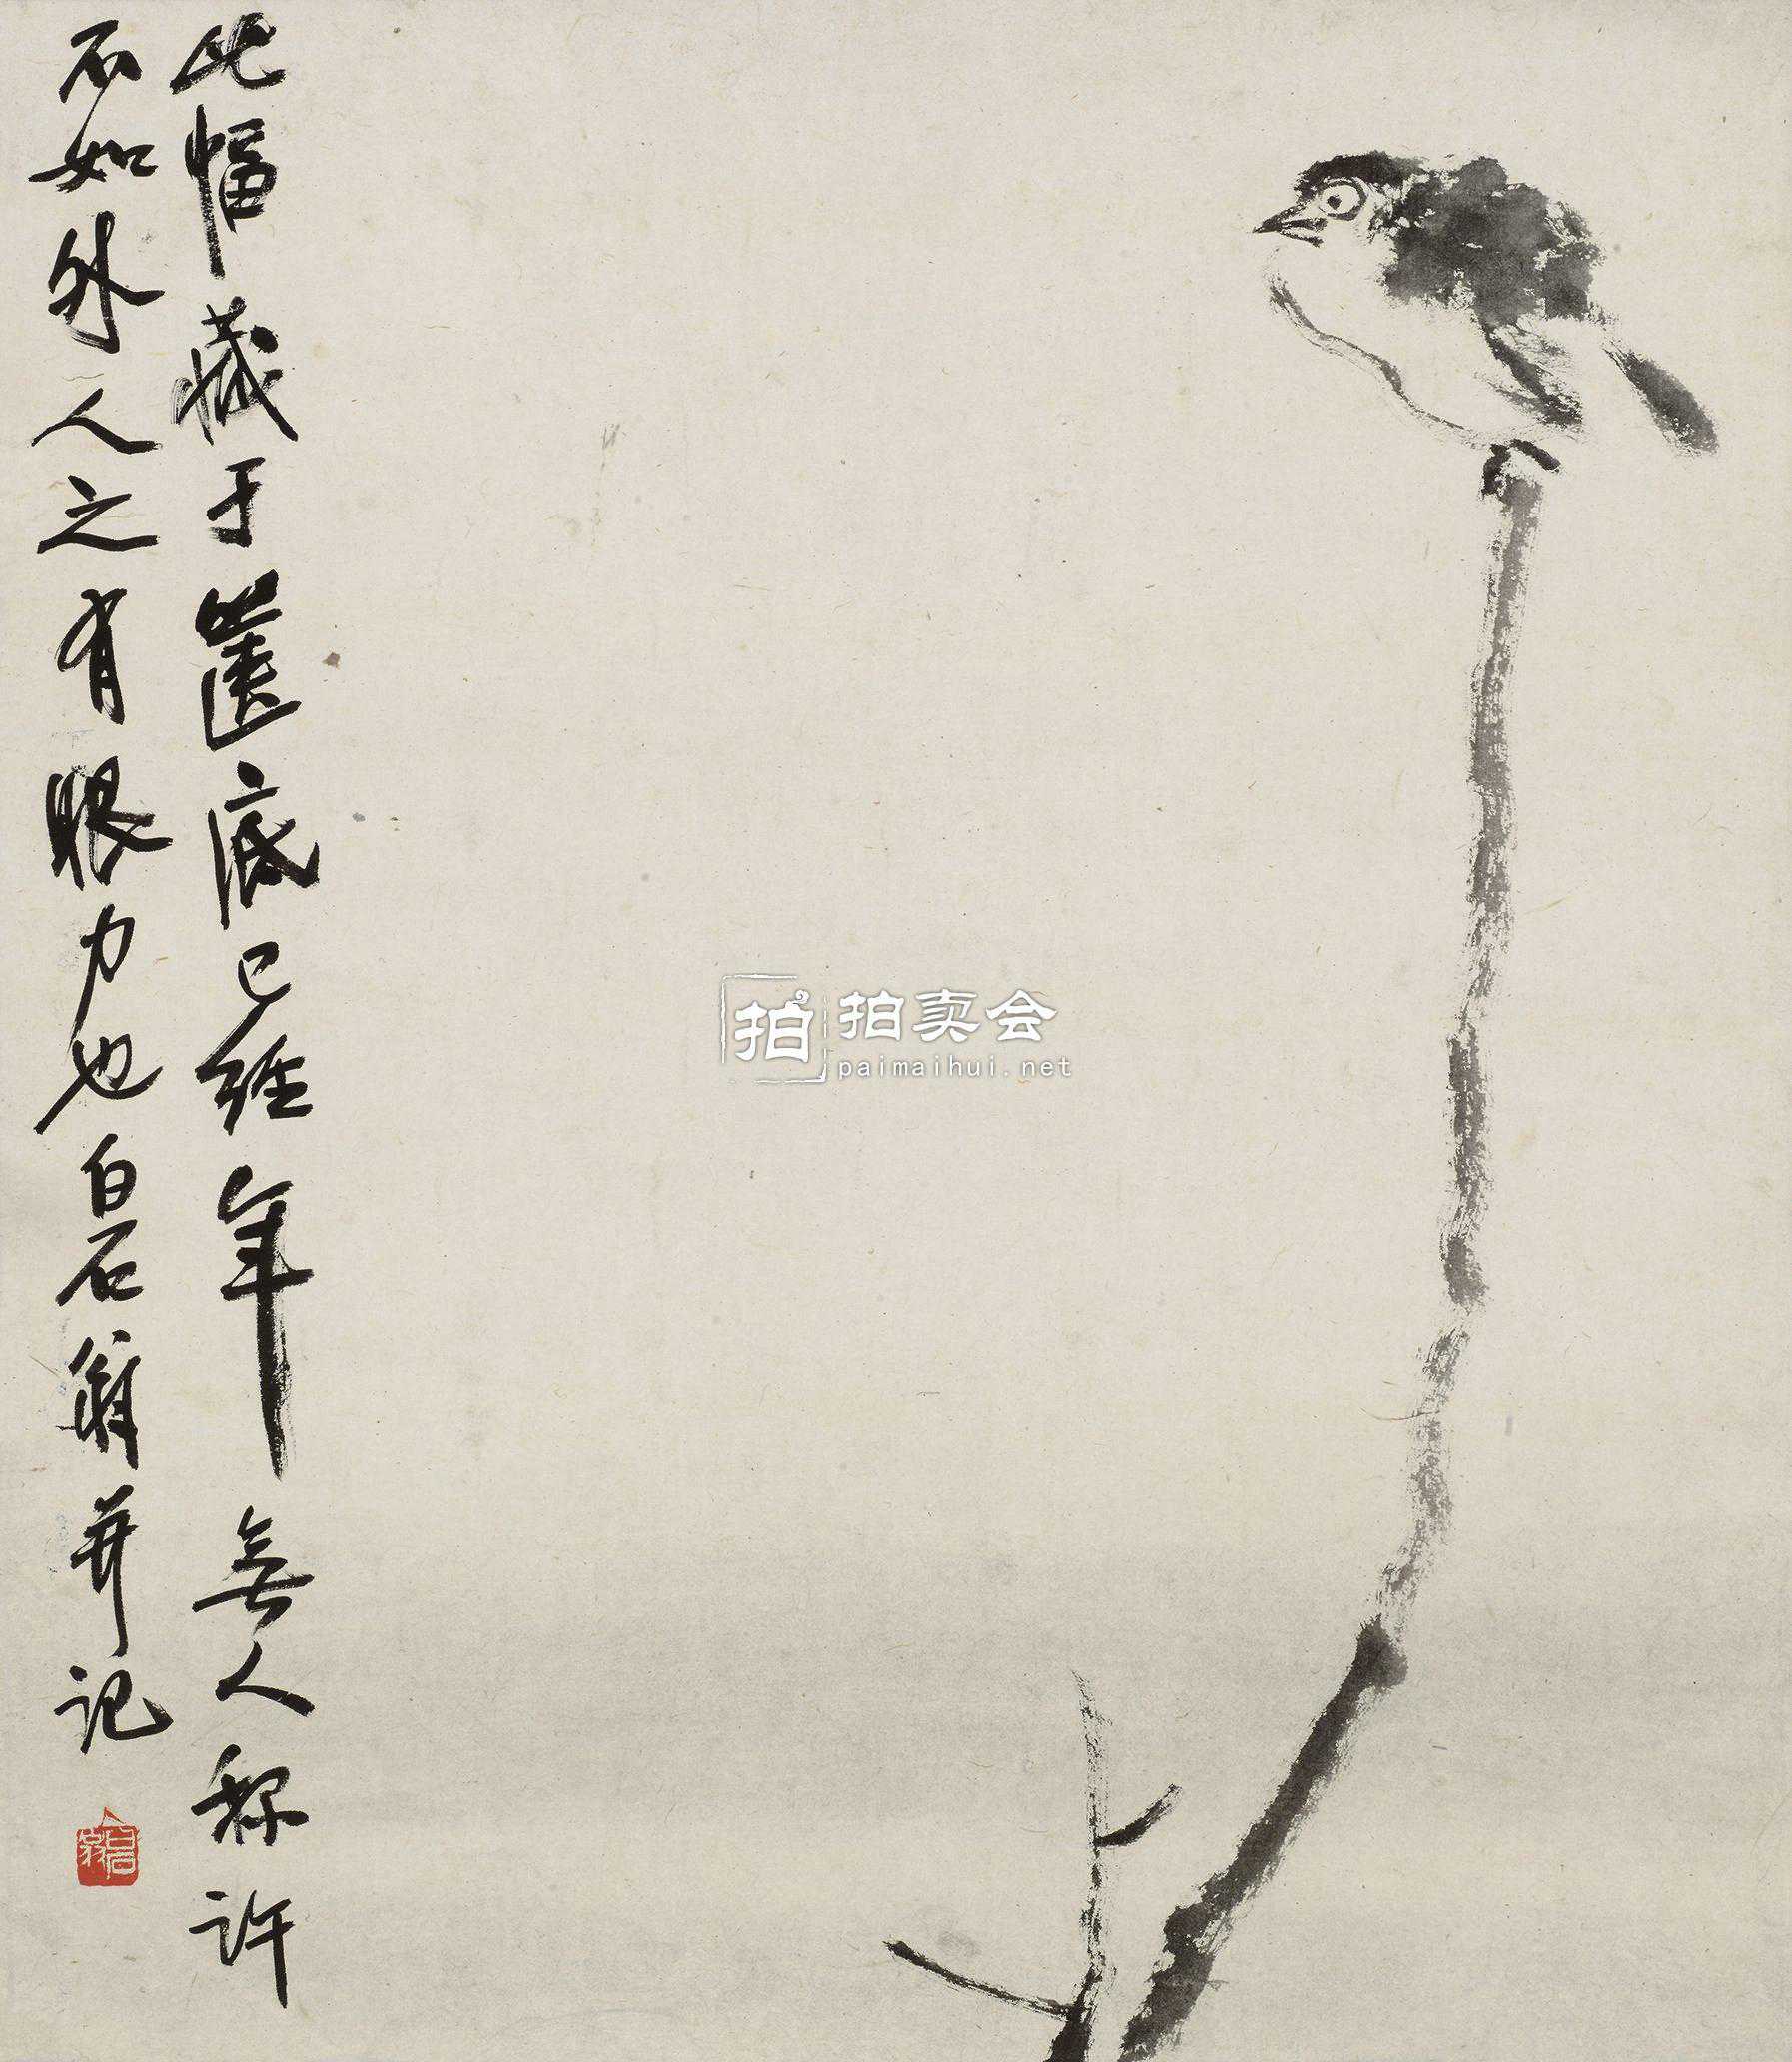 此幅藏于簏底已经年无人称许
不如外人之有眼力也白石翁并记
白石翁
拍 拍卖会
paimaihui.net